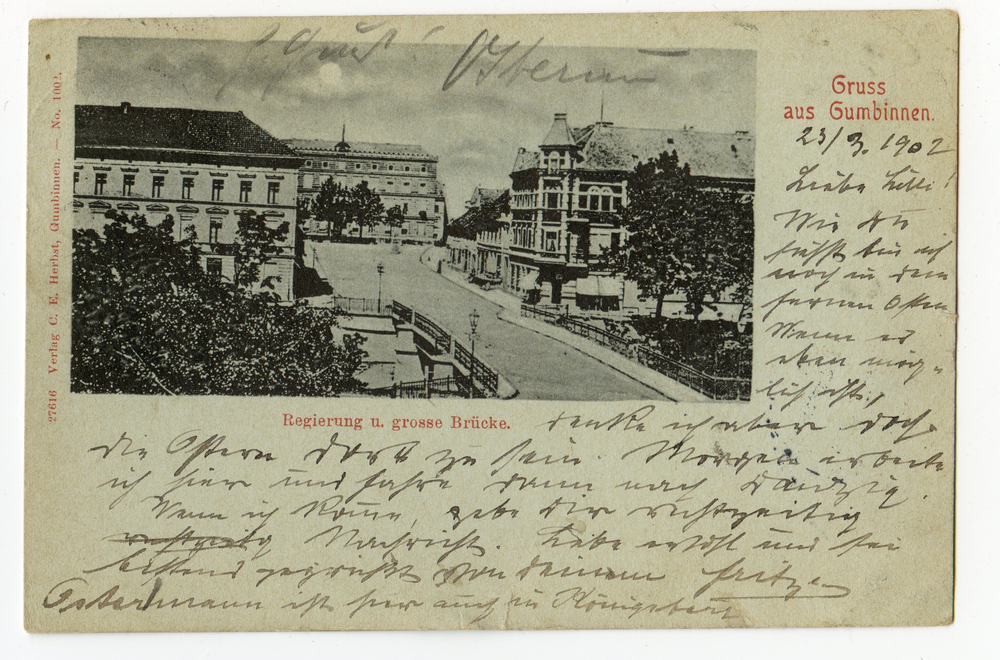 Gruss
aus Gumbinnen.
23/3. 1902
Liebe Lilli!
Wie Du
siehst bin ich
noch in dem
fernen Osten
Wenn es
eben mög-
lich ist,
27616 Verlag C. E. Herbst, Gumbinnen. — No. 1002.
Regierung u. grosse Brücke.
denke ich aber doch
die Ostern dort zu sein. Morgen arbeite
ich hier und fahre dann nach Danzig.
Wenn ich komme, gebe Dir rechtzeitig
Nachricht. Lebe wohl und sei
bestens gegrüßt von deinem Fritz
Ostermann ist hier auch in Königsberg